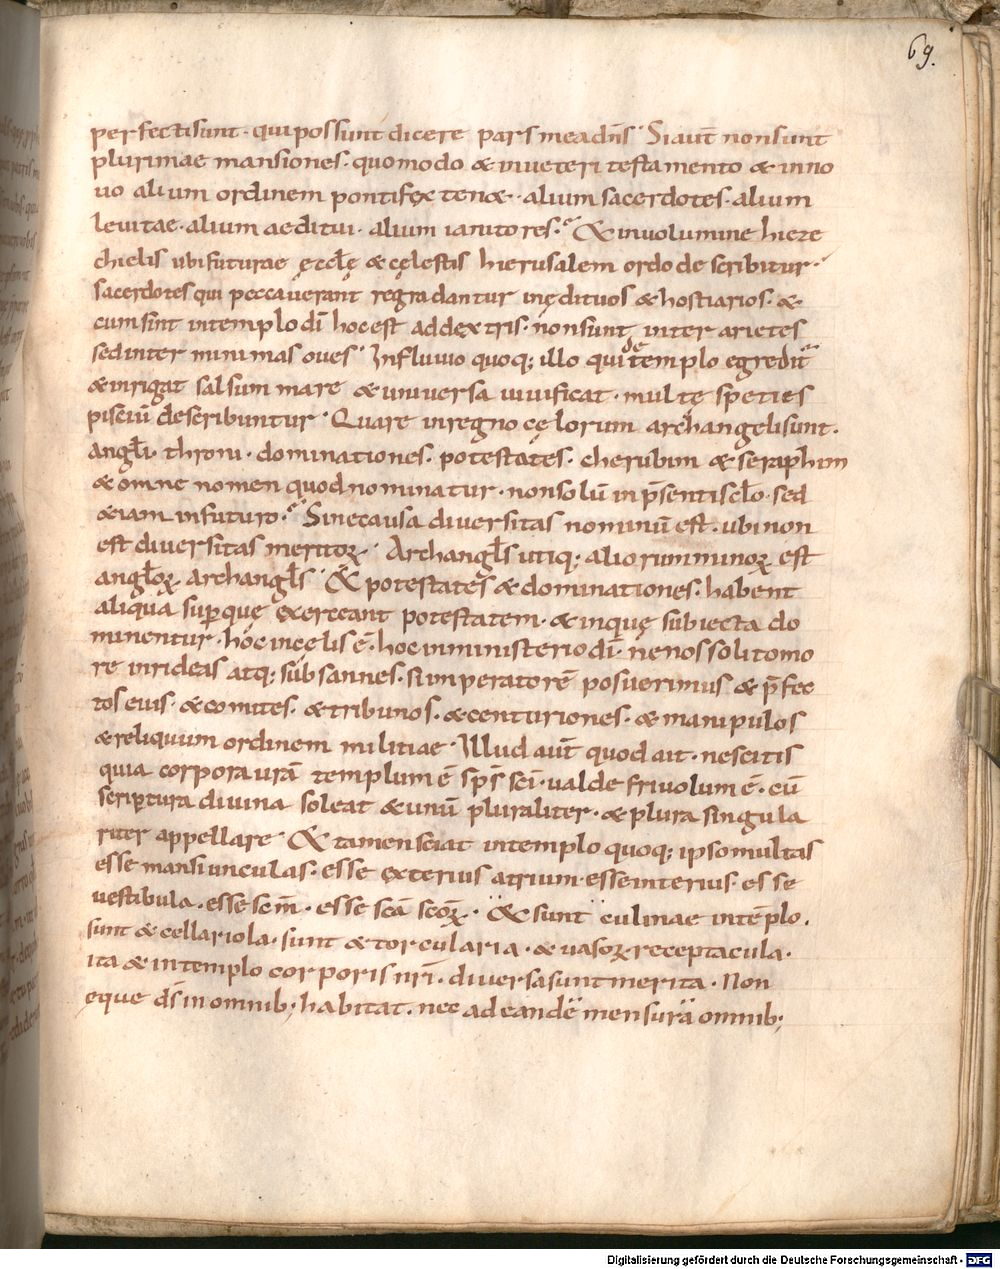 69.
perfectisunt· qui possunt dicere pars mea dn̄s· Si aut̄ non sunt
plurimae mansiones· quomodo & inueteri testamento & inno
uo alium ordinem pontifex ten&· alium sacerdotes· alium
leuitae· alium aeditui· alium ianitores· & inuolumine hieze
chielis ubi futurae ęccl̄ę & cęlestis hierusalem ordo describitur·
sacerdotes qui peccauerant regradantur inędituos & hostiarios· &
cum sint intemplo dī hoc est ad dextris· non sunt inter arietes
sed inter minimas oues· In fluuio quoq; illo qui de templo egredit̄
& inrigat salsum mare & uniuersa uiuificat· multę speties
pisciū describuntur· Quare inregno cęlorum archangeli sunt·
angl̄i· throni· dominationes· potestates· cherubim & seraphim
& omne nomen quod nominatur· non solū in p̄senti scl̄o· sed
&iam in futuro· Sine causa diuersitas nominū est· ubi non
est diuersitas meritoꝝ· Archangl̄s utiq; aliorum minoꝝ est
angl̄oꝝ archangl̄s· & potestates & dominationes· habent
aliqua suꝑ quę exerceant potestatem· & inquę subiecta do
minentur· hoc in cęlis ē· hoc in ministerio dī· ne nos solito mo
re inrideas atq; subsannes· si imperatorē posuerimus & p̄fec
tos eius· & comites· & tribunos· & centuriones· & manipulos
& reliquum ordinem militiae· Illud aut̄ quod ait· nescitis
quia corpora urā templum ē sp̄s scī· ualde friuolum ē· cū
scriptura diuina soleat & unū pluraliter· & plura singula
riter appellare· & tamen sciat intemplo quoq; ipso multas
esse mansiunculas· esse exterius atrium· esse interius· esse
uestibula· esse scm̄· esse scā scōꝝ· & sunt culinae intēplo·
sunt & cellariola· sunt & torcularia· & uasoꝝ receptacula·
ita & in templo corporis nrī· diuersa sunt merita· Non
eque ds̄ in omnib; habitat· nec ad eandē mensurā omnib;
Digitalisierung gefördert durch die Deutsche Forschungsgemeinschaft - DFG